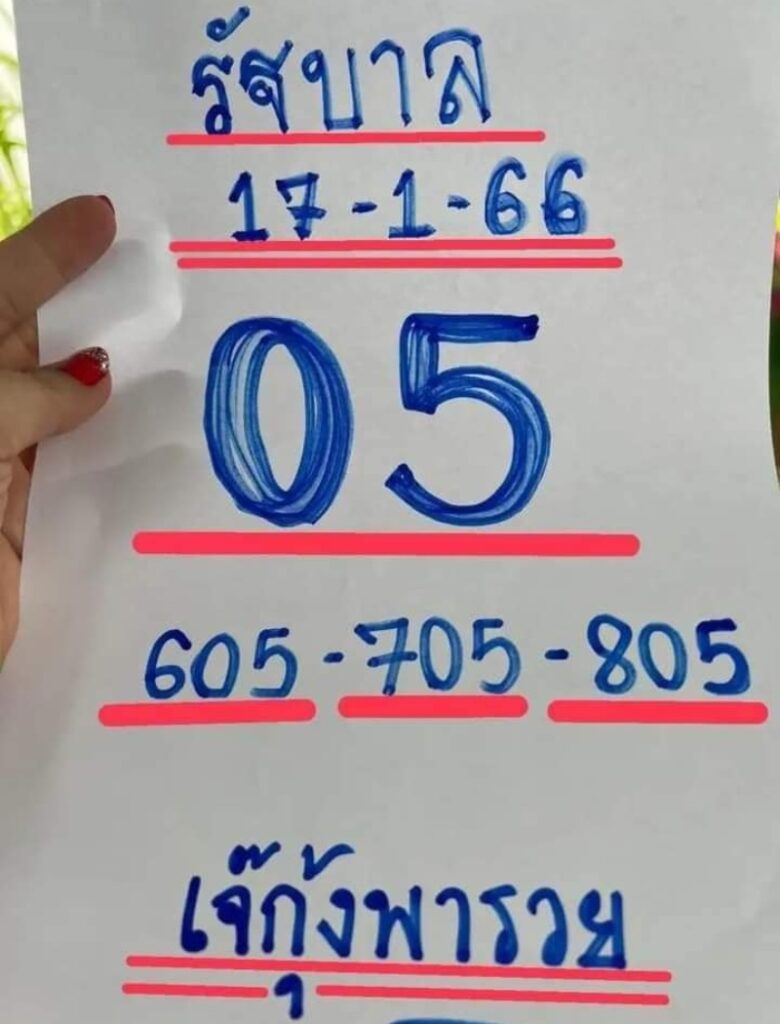 รัฐบาล
17-1-66
05
605-705-805
เจ๊กุ้งพารวย